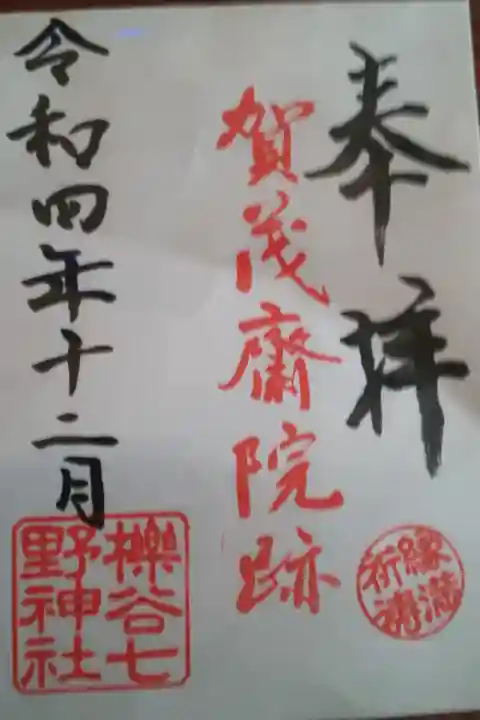 奉拝
賀茂齋院跡
令和四年十二月
櫟谷七
野神社